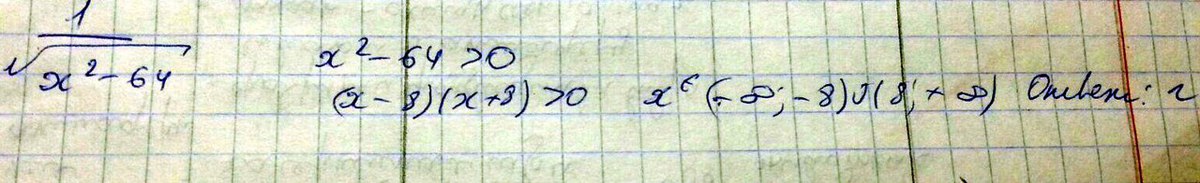 1
√x² - 64
x² - 64 > 0
(x - 8)(x + 8) > 0 x ∈ (-∞; -8) ∪ (8; +∞) Ответ: г